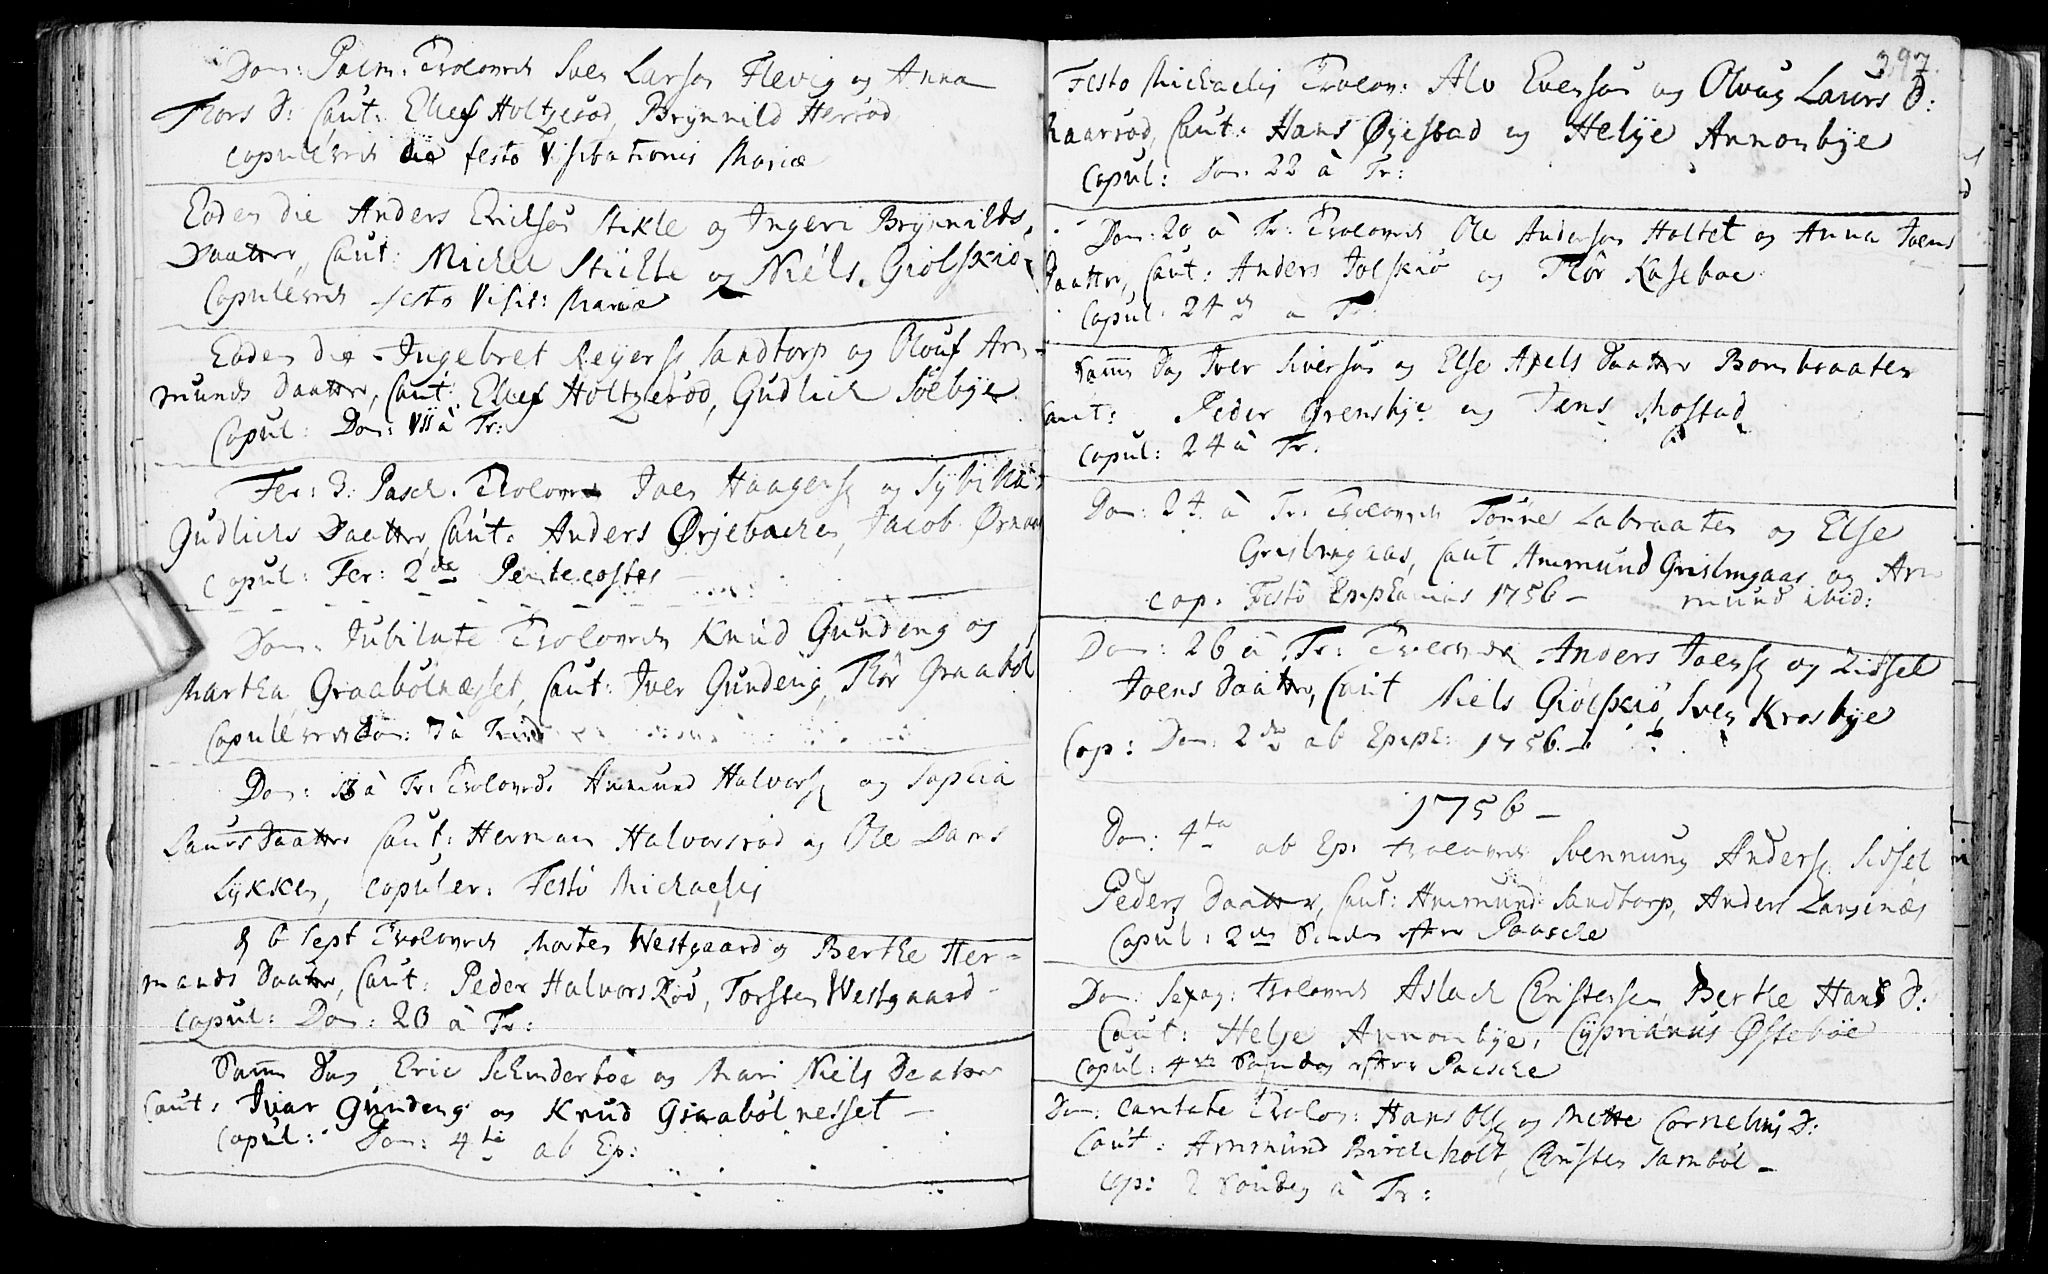 Dom: Palm: Trolov: Sven Larsøn Flevig og Anna
Thors D: Caut: Ellef Holtzerød, Brynnild Herrød
copul: die festo Visitationis Mariæ
Eodem die Anders Erichsøn Stikle og Ingeri Brynnilds
Daatter, Caut: Michel Stichle og Niels Giølskiø
Copul: festo Visit: Mariæ
Eodem die Ingebret Reyers: Sandtorp og Olouf Am-
munds Daatter, Caut: Ellef Holtzerød, Gudlich Soebye
Copul: Dom: VII à Tr:
Fer: 3. Pasch. Trolov: Joen Haagens: og Sybilla
Gudlichs Daatter, Caut: Anders Ørjebachen, Jacob Ørnaas
copul: Fer: 2de Pentecostes
Dom: Jubilate Trolov: Knud Gundeng og
Martha Graabølnesset, Caut: Iver Gundeng, Thor Graabøl
Copul: Dom: 7 à Trinit
Dom: 13 à Tr: Trolov: Ammund Halvors: og Sophia
Laurs Daatter Caut: Herman Halvorsrød og Ole Dams
Lykken, copuler: Festo Michaelis
6 Sept Trolov: Morten Westgaard og Berthe Her-
mands Daatter, Caut: Peder HalvorsRød, Torsten Westgaard
Copul: Dom: 20 à Tr:
Samme Dag Eric Schinderboe og Mari Niels Daatter
Caut: Ivar Gundeng og Knud Graabølnesset
Copul: Dom: 4te ab Ep:
397.
Festo Michaelis Trolov: Alv Evensøn og Oloug Laurs D:
haarrød, Caut: Hans Øyestad og Helje Annonbye
Copul: Dom. 22 à Tr:
Dom: 20 à Tr: Trolov: Ole Andersøn Holtet og Anna Joens
Daatter, Caut: Anders Jolskiø og Thor Kaseboe
Copul: 24de à Tr
Samme Dag Iver Siversøn og Else Axels Daatter Bombraaten
Caut: Peder Ørensbye og Jens Mostad
Copul: 24 à Tr.
Dom: 24 à Tr: Trolov: Tønnes Labraaten og Else
Grislingaas, Caut Ammund Grislingaas og Am-
cop. Festo Epiphanias 1756 - mund ibid:
Dom: 26 à Tr: Trolov: Anders Joens: og Zissel
Joens Daatter, Caut Niels Giølskiø, Sven Krosbye
Cop: Dom. 2de ab Epiph: 1756.
1756 -
Dom: 4ta ab Ep: trolov: Svennung Anders: Sissel
Peders Daatter, Caut: Ammund Sandtorp, Anders Langenæs
Copul: 2den Søndag efter Paasche
Dom: Sexag: trolov: Aslach Christensen Berthe Hans D:
Caut: Helje Annonbye, Cyprianus Østebøe
Copul: 4de Søndag efter Paasche
Dom: Cantate Trolov: Hans Ols: og Mette Cornelius D:
Caut: Ammund Birchholt, Christen Sambøl -
cop: 2 Søndag à Tr: